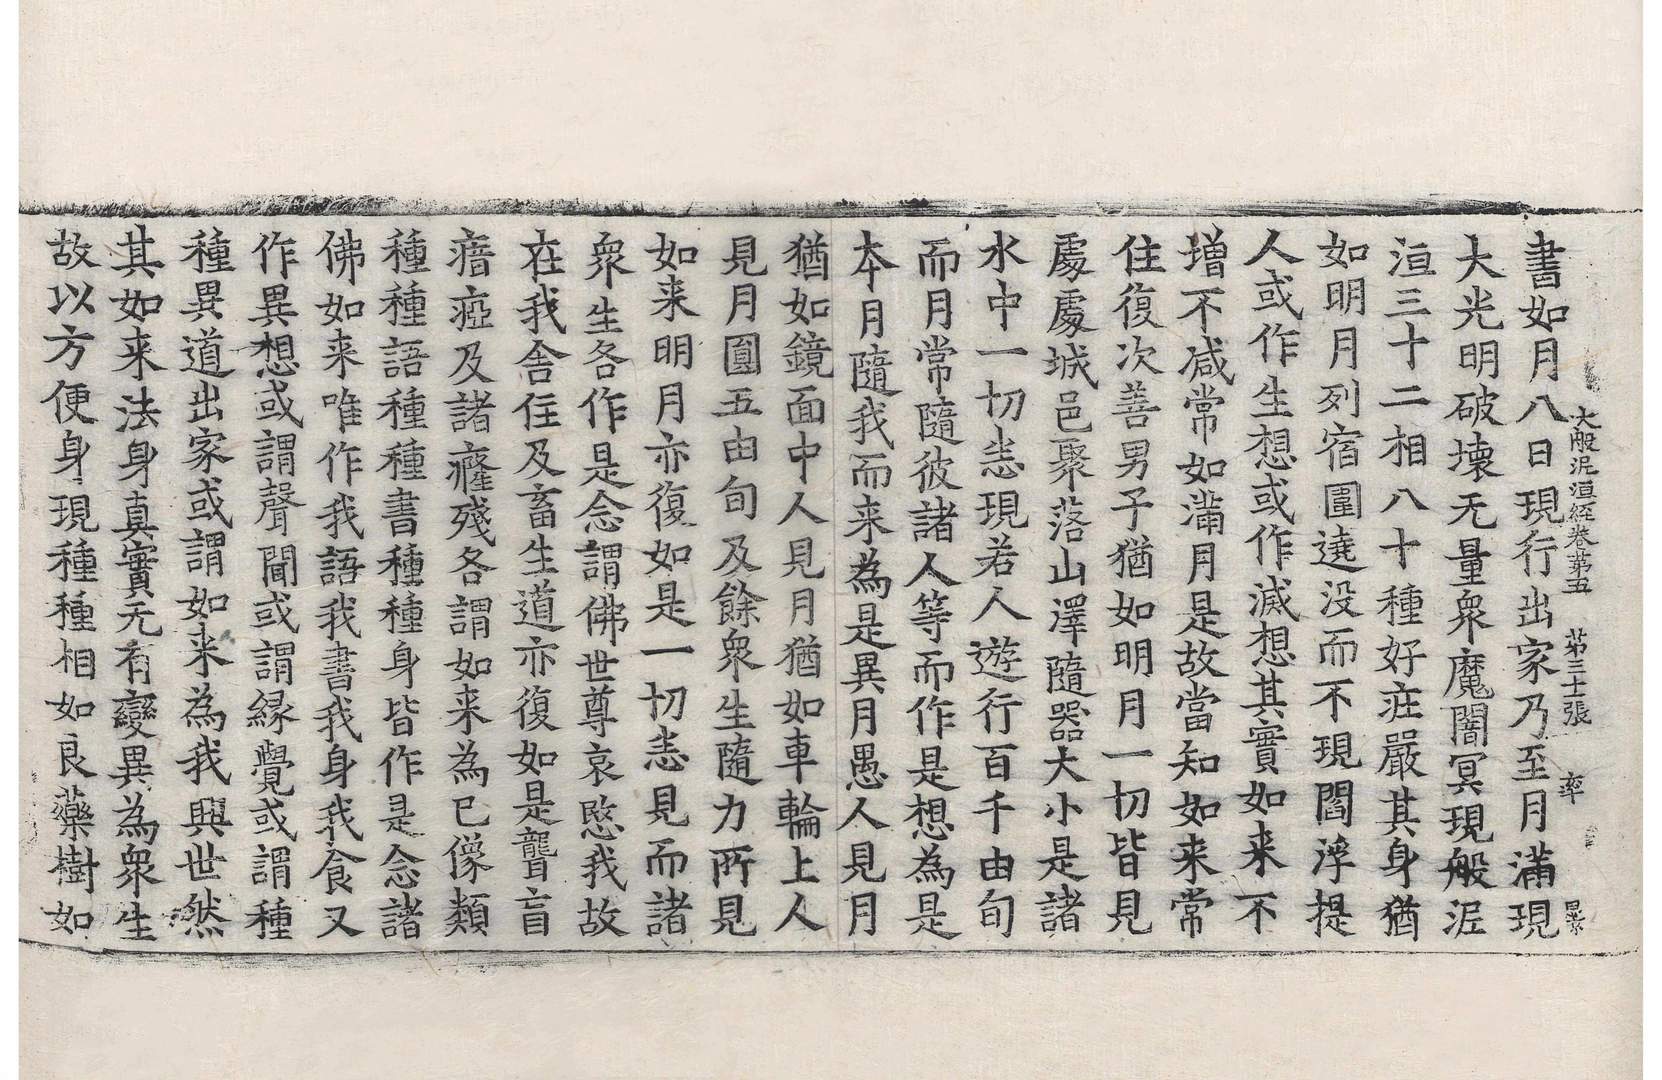 大般泥洹經卷苐五 苐三十張 率
書如月八日現行出家乃至月滿現
大光明破壞无量衆魔闇冥現般泥
洹三十二相八十種好莊嚴其身猶
如明月列宿圍遶没而不現閻浮提
人或作生想或作滅想其實如来不
增不减常如滿月是故當知如来常
住復次善男子猶如明月一切皆見
處處城邑聚落山澤隨器大小是諸
水中一切恚現若人遊行百千由旬
而月常隨彼諸人等而作是想為是
本月隨我而来為是異月愚人見月
猶如鏡面中人見月猶如車輪上人
見月圎五由旬及餘衆生隨力所見
如来明月亦復如是一切恚見而諸
衆生各作是念謂佛世尊哀愍我故
在我舎住及畜生道亦復如是聾盲
瘖瘂及諸癃殘各謂如来為已像類
種種語種種書種種身皆作是念諸
佛如来唯作我語我書我身我食又
作異想或謂聲聞或謂緣覺或謂種
種異道出家或謂如来為我興世然
其如来法身真實无有變異為衆生
故以方便身現種種相如良藥樹如